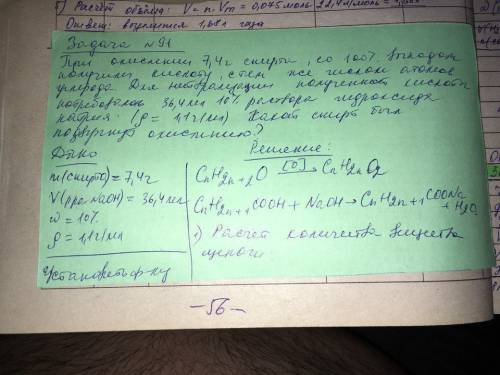 Расчет объёма: V = n · Vm = 0,075 моль · 22,4 л/моль = 1,68 л
Ответ: выделится 1,68 л газа
Задача №91
При окислении 7,4 г спирта, со 100% выходом
получили кислоту, с тем же числом атомов
углерода. Для нейтрализации полученной кислоты
потребовалось 36,4 мл 10% раствора гидроксида
натрия (ρ = 1,1 г/мл) Какой спирт был
подвергнут окислению?
Дано
m(спирта) = 7,4 г
V(р-ра NaOH) = 36,4 мл
w = 10%
ρ = 1,1 г/мл
Установеть ф-лу
Решение:
CnH2n+2O [O]→ CnH2nO2
CnH2n+1COOH + NaOH → CnH2n+1COONa
+ H2O
1) Расчет количества вещества
щелочи:
-56-